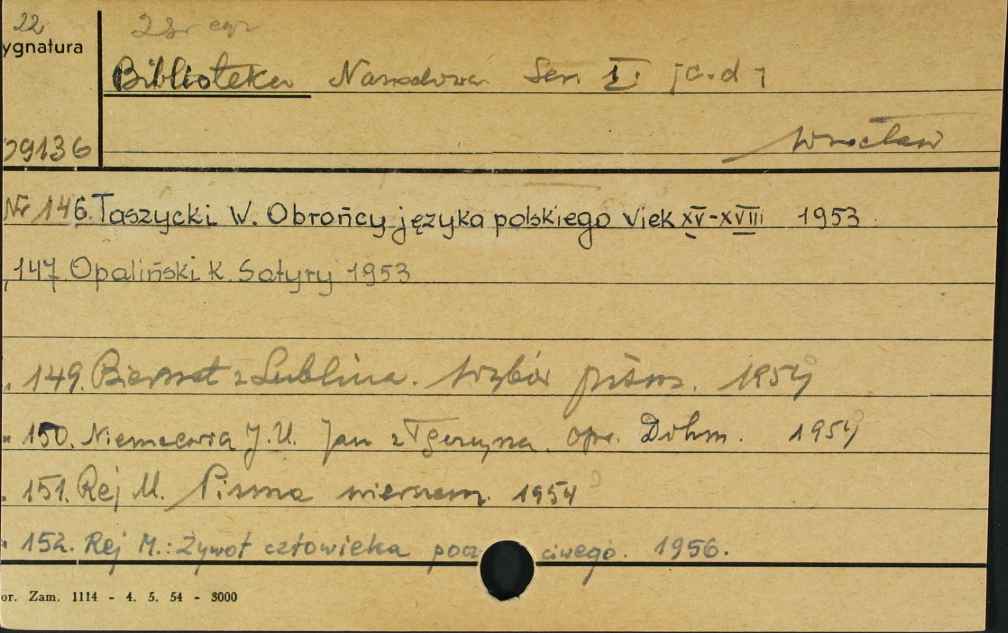 22
ygnatura
Biblioteka Narodowa. Ser. I. [c.d.]
Wrocław
29136
Nr 146. Taszycki W. Obrońcy języka polskiego Wiek XV-XVIII 1953
147 Opaliński K. Satyry 1953
" 149. Biernat z Lublina. Wybór pism. 1954
" 150. Niemcewicz J.U. Jan z Tęczyna. Opr. Dihm. 1954
" 151. Rej M. Pisma wierszem. 1954
" 152. Rej M.: Żywot człowieka pocz ciwego. 1956.
or. Zam. 1114 - 4. 5. 54 - 3000